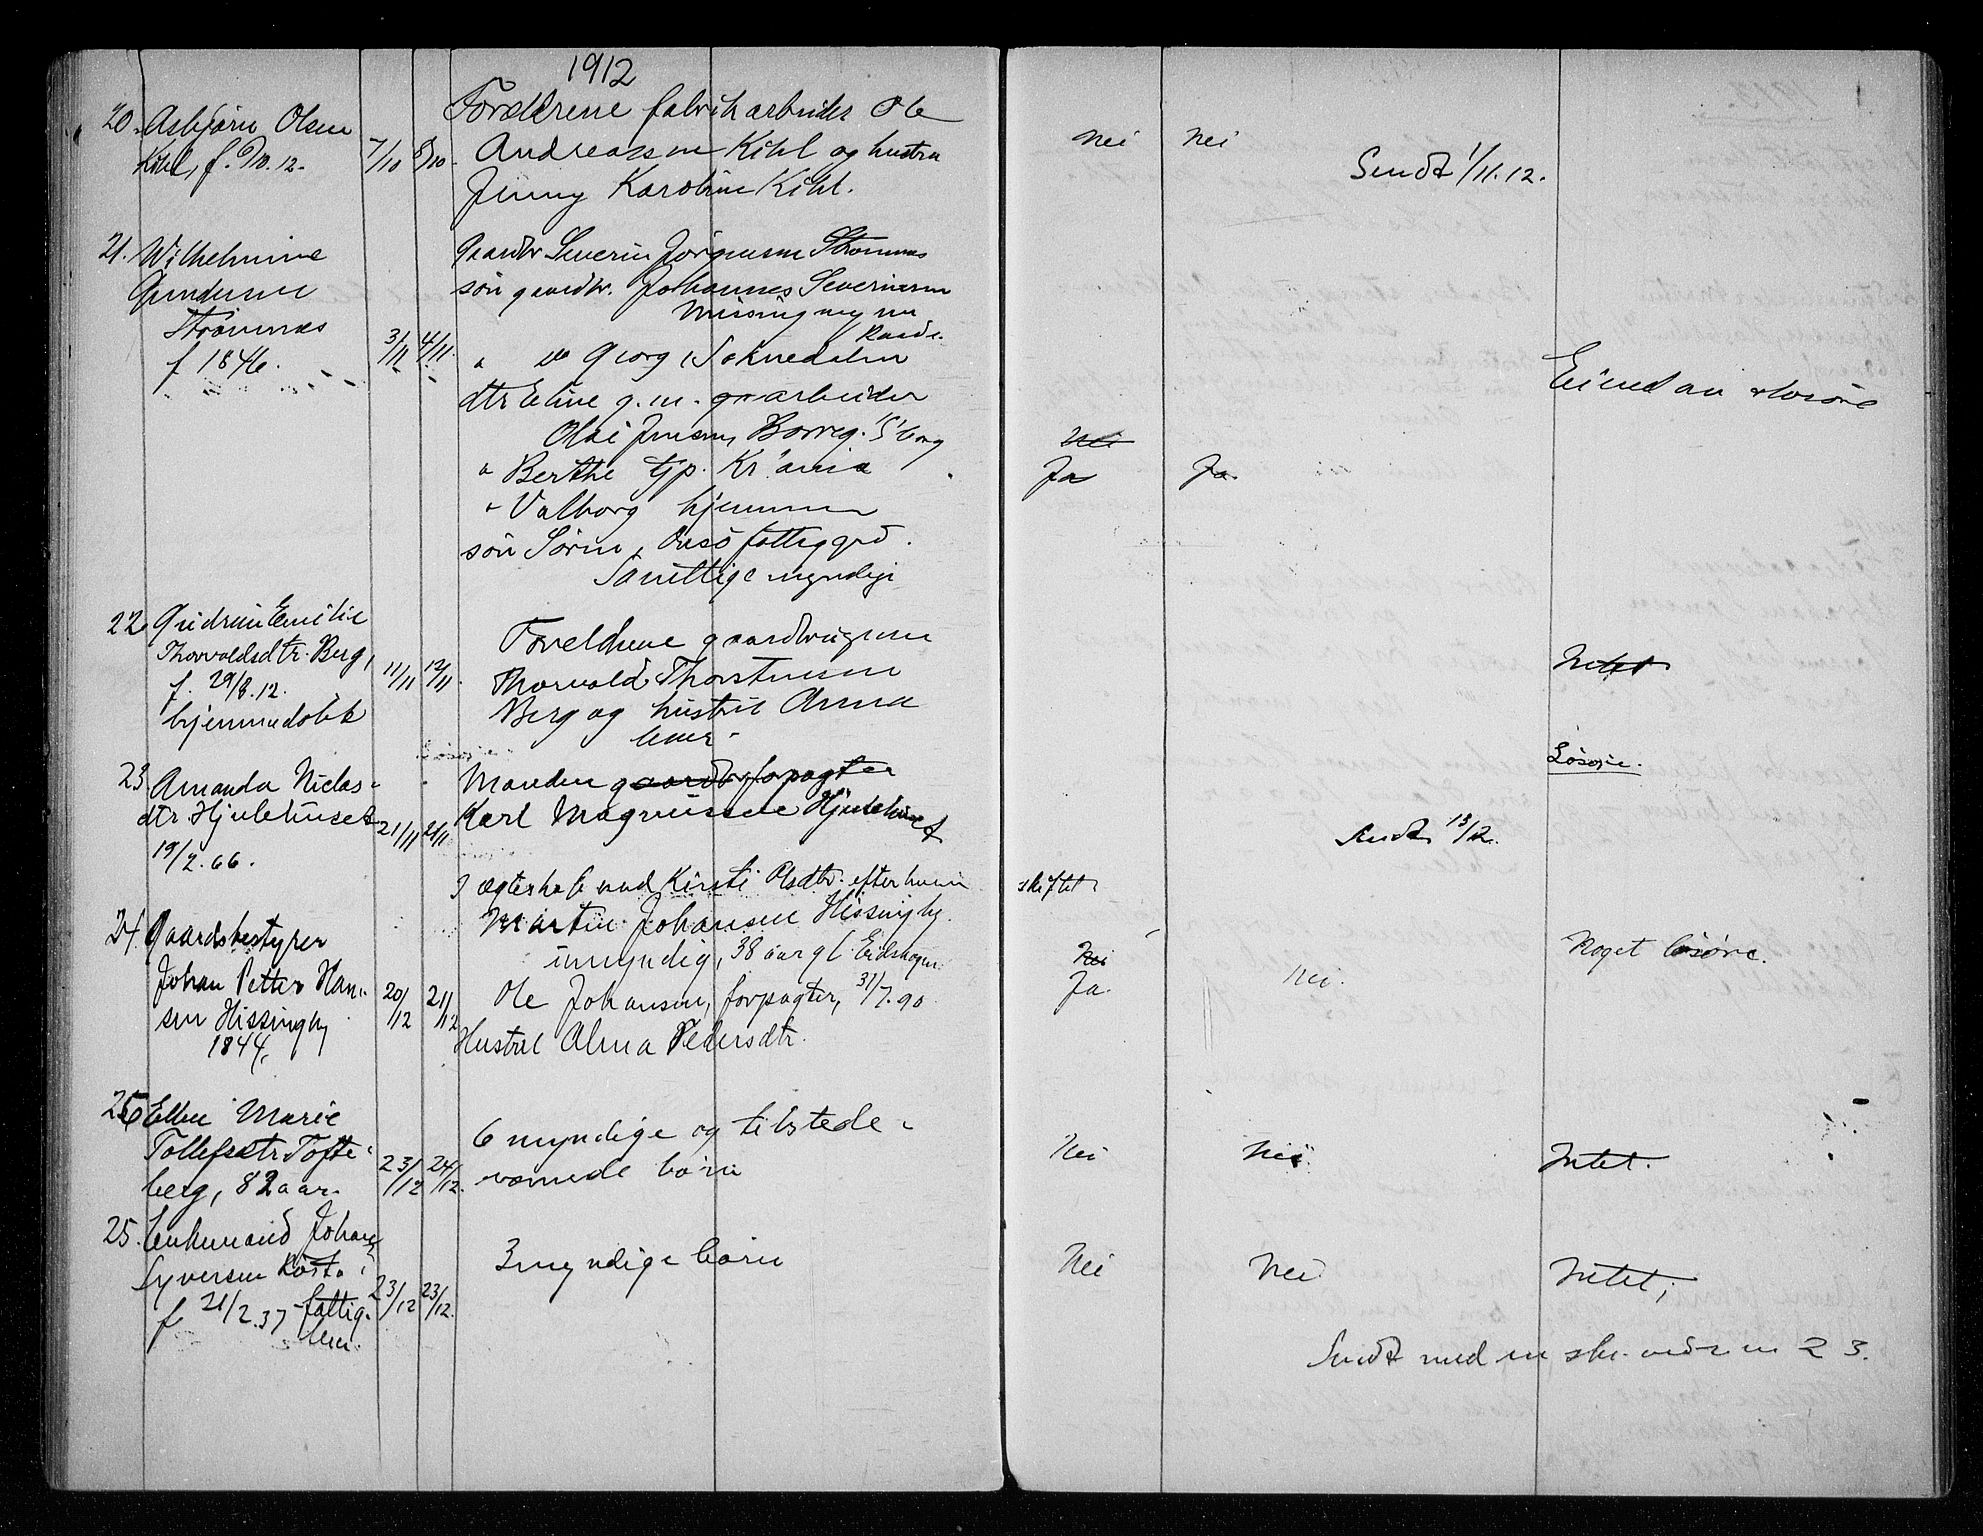 1912
20. Asbjørn Olsen
Kihl, f. 6/10. 12. 7/10 8/10.
Forældrene fabrikarbeider Ole
Andreassen Kihl og hustru
Jenny Karoline Kihl.
Nei Nei
Sendt 1/11. 12.
21. Wilhelmine
Gundersen
Strømnæs
f 1846. 3/11 4/11.
Gaardbr Severin Jørgensen Strømnæs
søn gaardbr. Johannes Severinsen
Missingmyr
Raade.
" Georg,
dtr Eline g.m. arbeider
Olai Jensen, Borreg. S'borg
" Berthe tjp. Kr.ania
" Valborg hjemme
søn Søren, Onsø fattiggrd.
Samtlige myndige
Nei
Ja Ja.
Eiendom & løsøre
22. Gudrun Emilie
Thorvaldsdtr. Berg,
f. 29/8. 12.
hjemmedøbt
11/11 12/11.
Forældrene gaardbruger
Thorvald Thorstensen
Berg og hustru Anna
Intet
23. Amanda Niclas-
dtr Hjulehuset
19/2. 66.
21/11 21/11
Manden gaardbr forpagter
Karl Magnussen Hjulehuset
Løsøre.
Sendt 13/12.
24. Gaardsbestyrer
Johan Petter Han-
sen Hissingby
1844.
20/12 21/12
I ægteskab med Kirsti Olsdtr. efter hvem skiftet
Martin Johansen Hissingby.
umyndig, 38 aar gl. Eidskogen
Ole Johansen, forpagter, 31/7. 90
Hustru Alma Pedersdtr.
Nei
Ja.
Nei.
Noget løsøre.
25 Ellen Marie
Tollefsdtr Tofte-
berg, 82 aar.
23/12 24/12.
6 myndige og tilstede-
værende børn
Nei Nei. Intet.
25. Enkemand Johan
Syversen Kasta
f 21/2. 37 fattig-
lem.
23/12 23/12.
3 myndige børn
Nei Nei Intet;
Sendt med en skr. vedr. n 23.